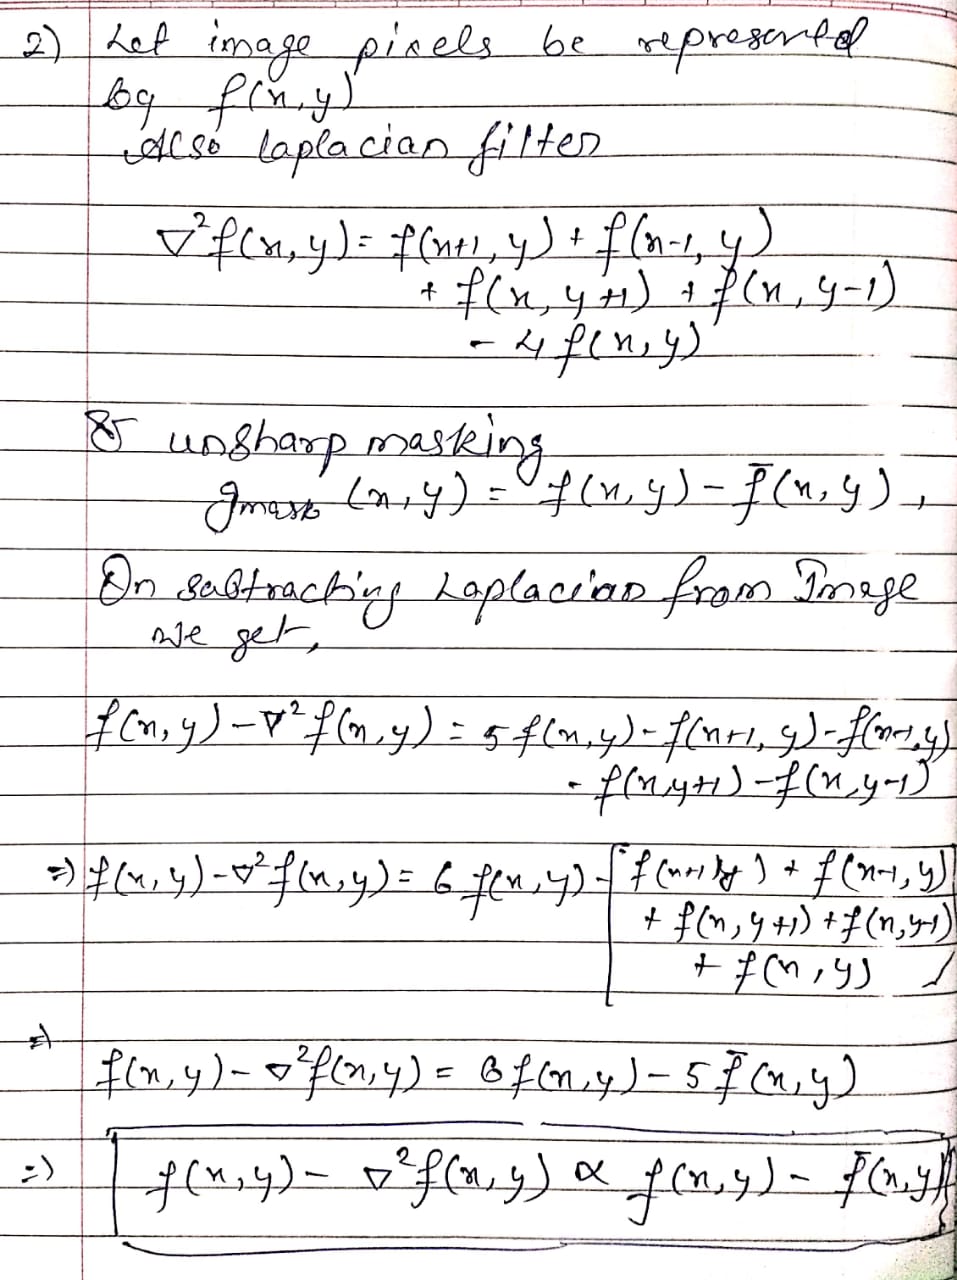 2) Let image pixels be represented
by f(x,y)
Also laplacian filter
∇²f(x,y) = f(x+1,y) + f(x-1,y)
+ f(x,y+1) + f(x,y-1)
- 4f(x,y)
& unsharp masking
g_mask (x,y) = f(x,y) - f̄(x,y),
On subtracting Laplacian from Image
we get,
f(x,y) - ∇²f(x,y) = 5f(x,y) - f(x+1,y) - f(x-1,y)
- f(x,y+1) - f(x,y-1)
=> f(x,y) - ∇²f(x,y) = 6f(x,y) - [f(x+1,y) + f(x-1,y)
+ f(x,y+1) + f(x,y-1)
+ f(x,y)]
=>
f(x,y) - ∇²f(x,y) = 6f(x,y) - 5f̄(x,y)
=> f(x,y) - ∇²f(x,y) ∝ f(x,y) - f̄(x,y)